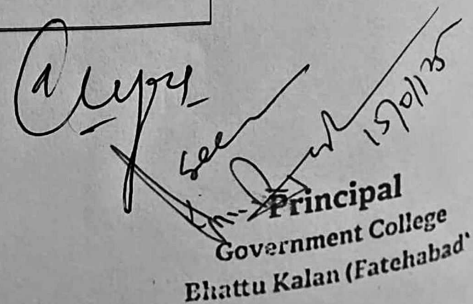 seen
15/01/25
Principal
Government College
Bhattu Kalan (Fatehabad)